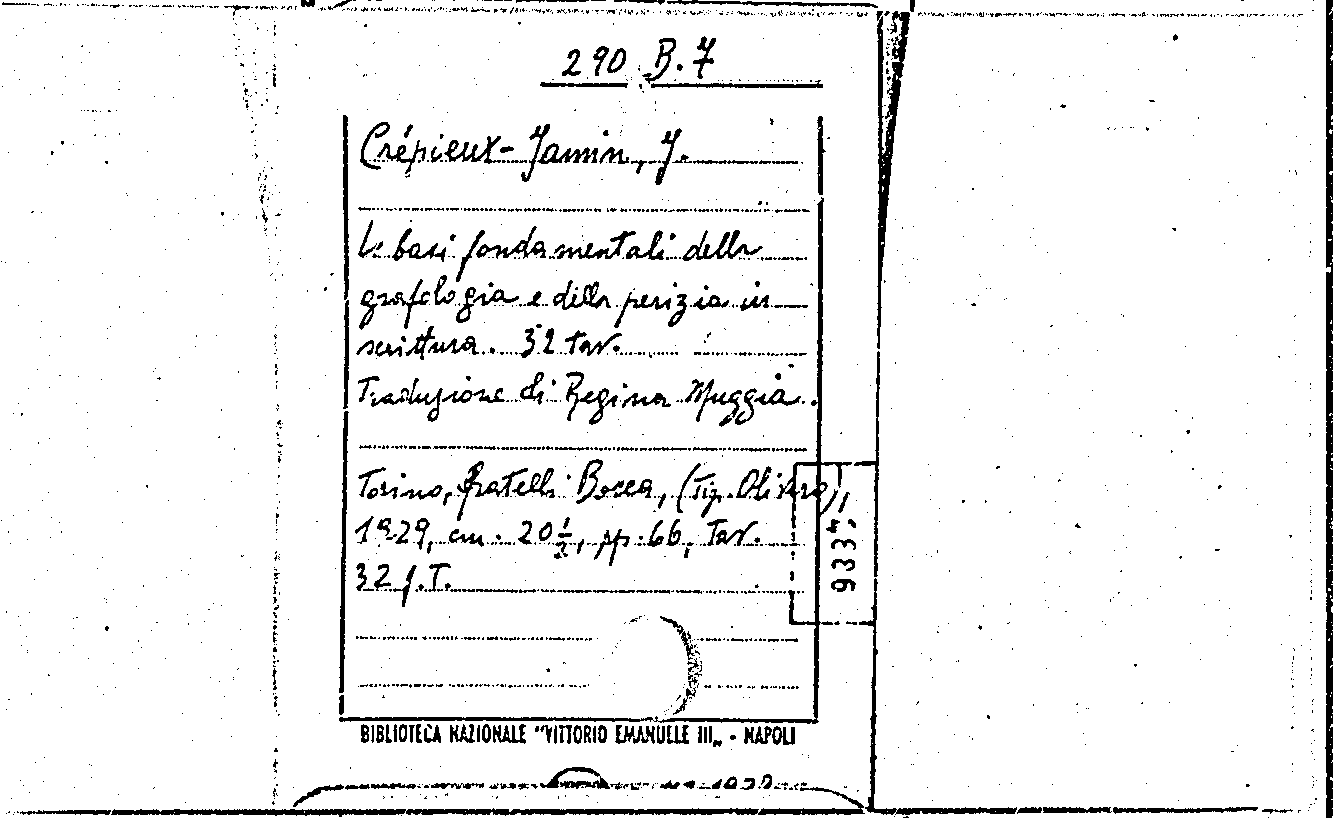 290 B. 7
Crépieux-Jamin, J.
Le basi fondamentali della
grafologia e della perizia in
scrittura. 32 tav.
Traduzione di Regina Muggia.
Torino, fratelli Bocca, (Tip. Olivero),
1929, cm. 20 1/2, pp. 66, Tav.
32 f. T.
9334
BIBLIOTECA NAZIONALE "VITTORIO EMANUELE III„ - NAPOLI